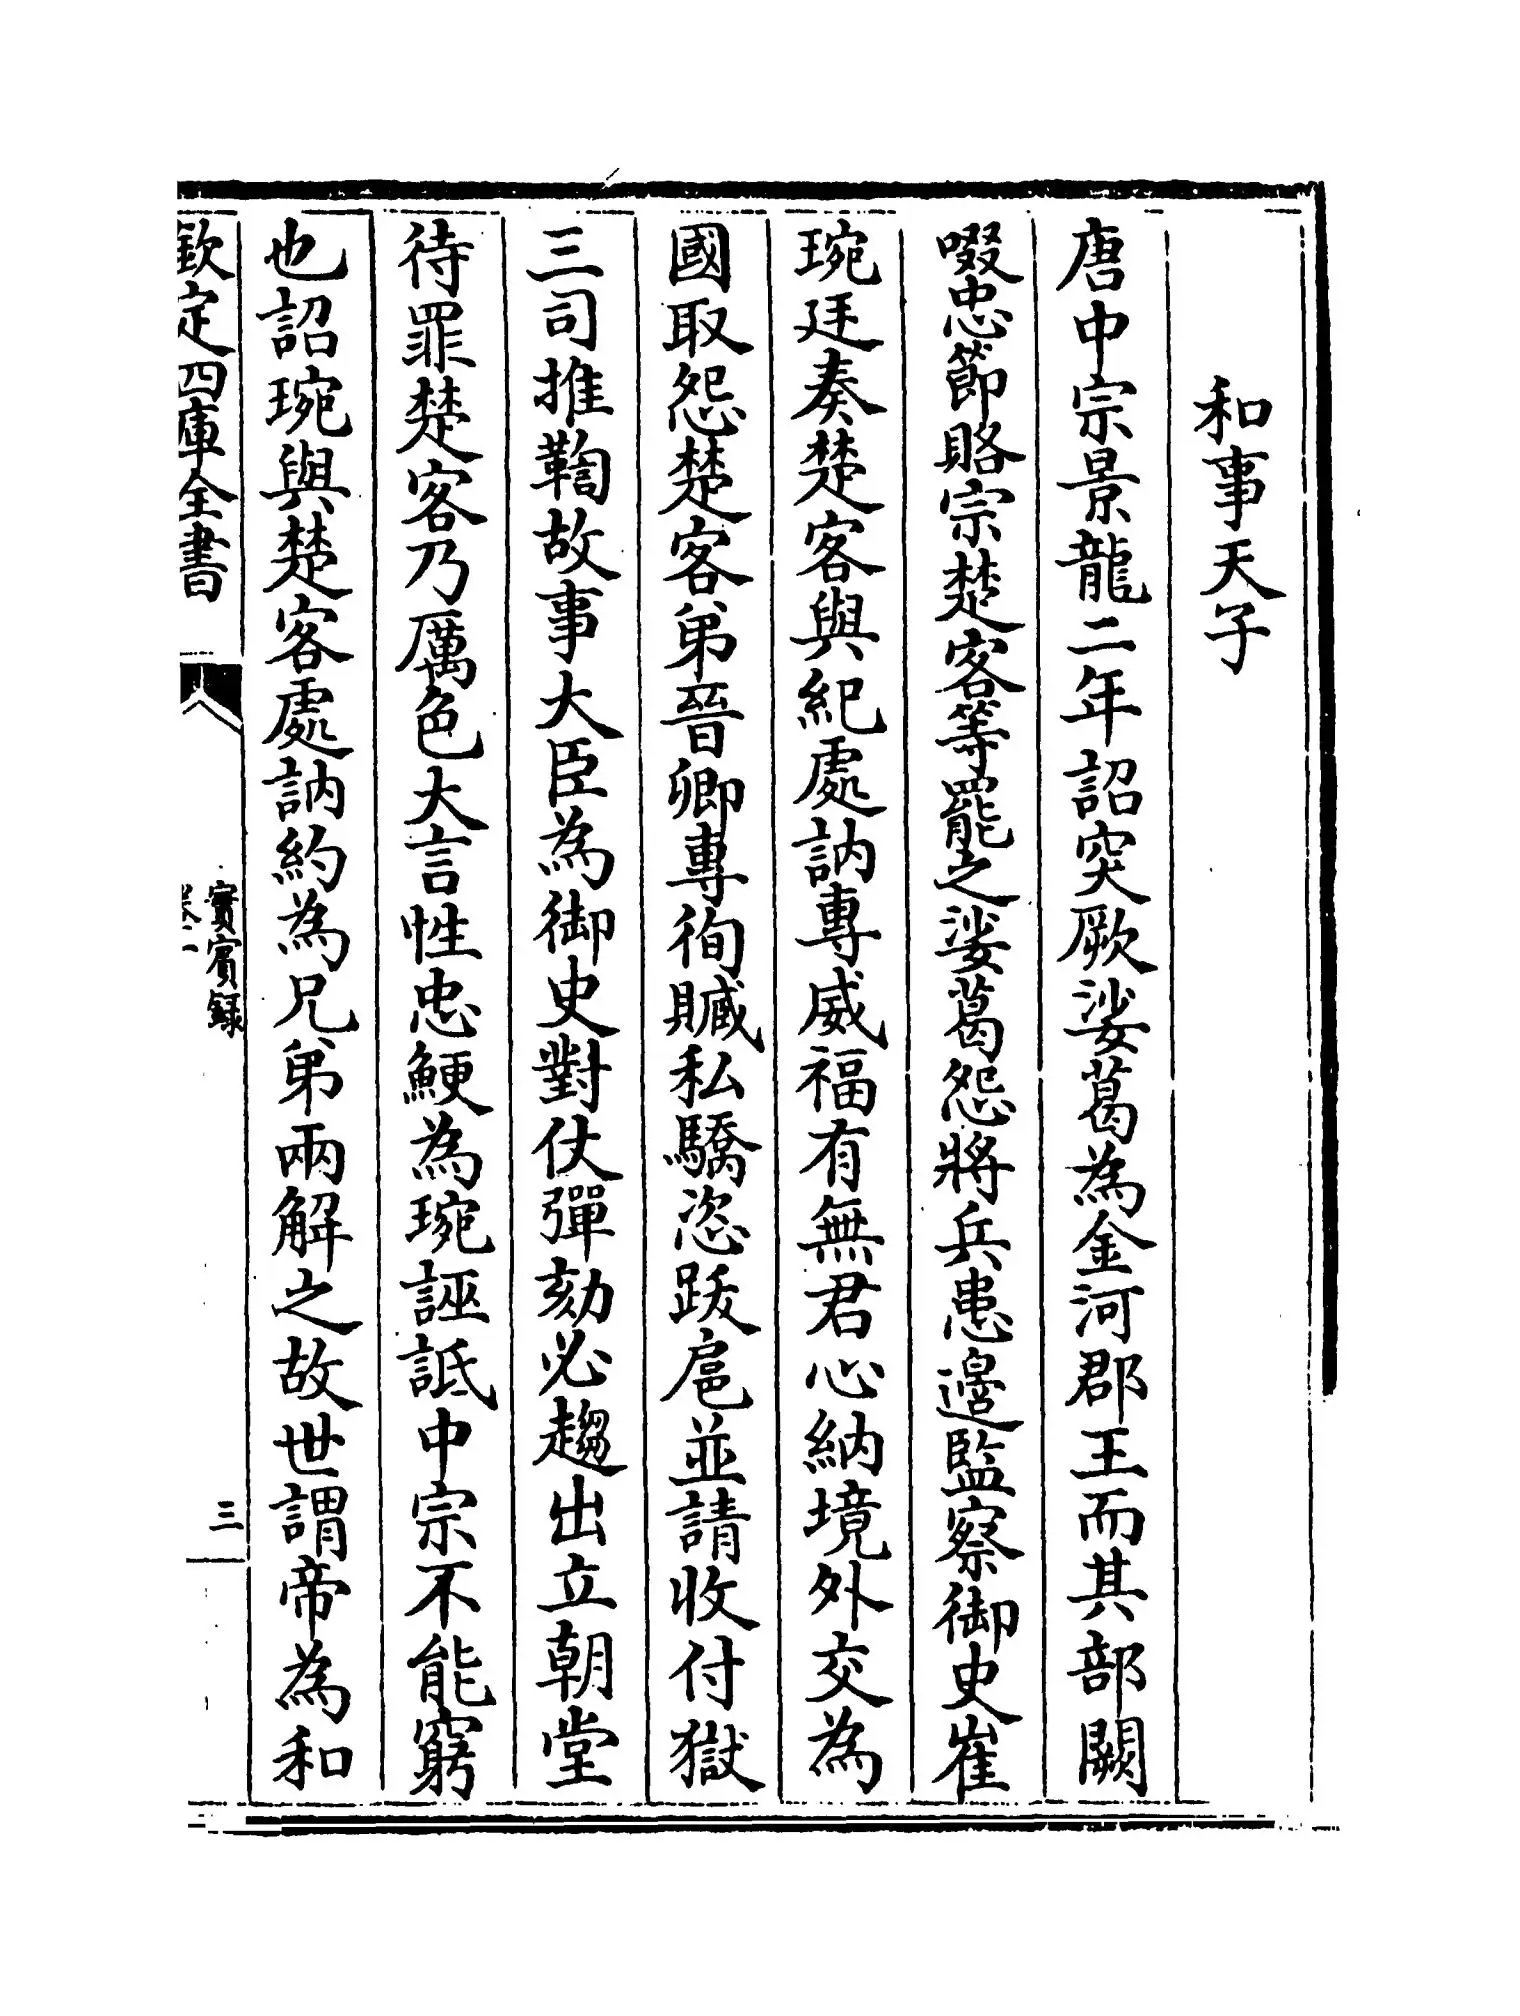 和事天子
唐中宗景龍二年詔突厥娑葛為金河郡王而其部闕
啜忠節賂宗楚客等罷之娑葛怨將兵患邊監察御史崔
琬廷奏楚客與紀處訥專威福有無君心納境外交為
國取怨楚客弟晉卿專徇贓私驕恣跋扈並請收付獄
三司推鞫故事大臣為御史對仗彈劾必趨出立朝堂
待罪楚客乃厲色大言性忠鯁為琬誣詆中宗不能窮
也詔琬與楚客處訥約為兄弟兩解之故世謂帝為和
欽定四庫全書
實賓錄
卷二
三